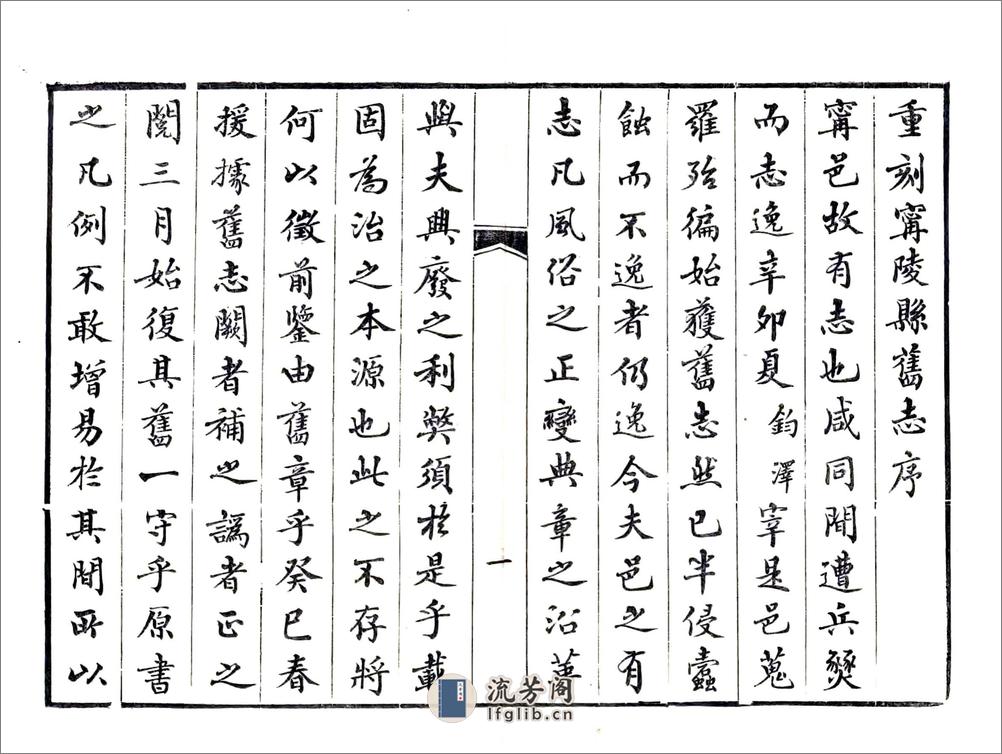 重刻寗陵縣舊志序
寗邑故有志也咸同間遭兵燹
而志逸辛卯夏鈞澤宰是邑蒐
羅殆徧始獲舊志然已半侵蠹
蝕而不逸者仍逸今夫邑之有
志凡風俗之正變典章之沿革
一
與夫興廢之利弊須於是乎載
固為治之本源也此之不存將
何以徵前鑒由舊章乎癸巳春
援據舊志闕者補之譌者正之
閱三月始復其舊一守乎原書
之凡例不敢增易於其間所以
流芳阁
lfglib.cn